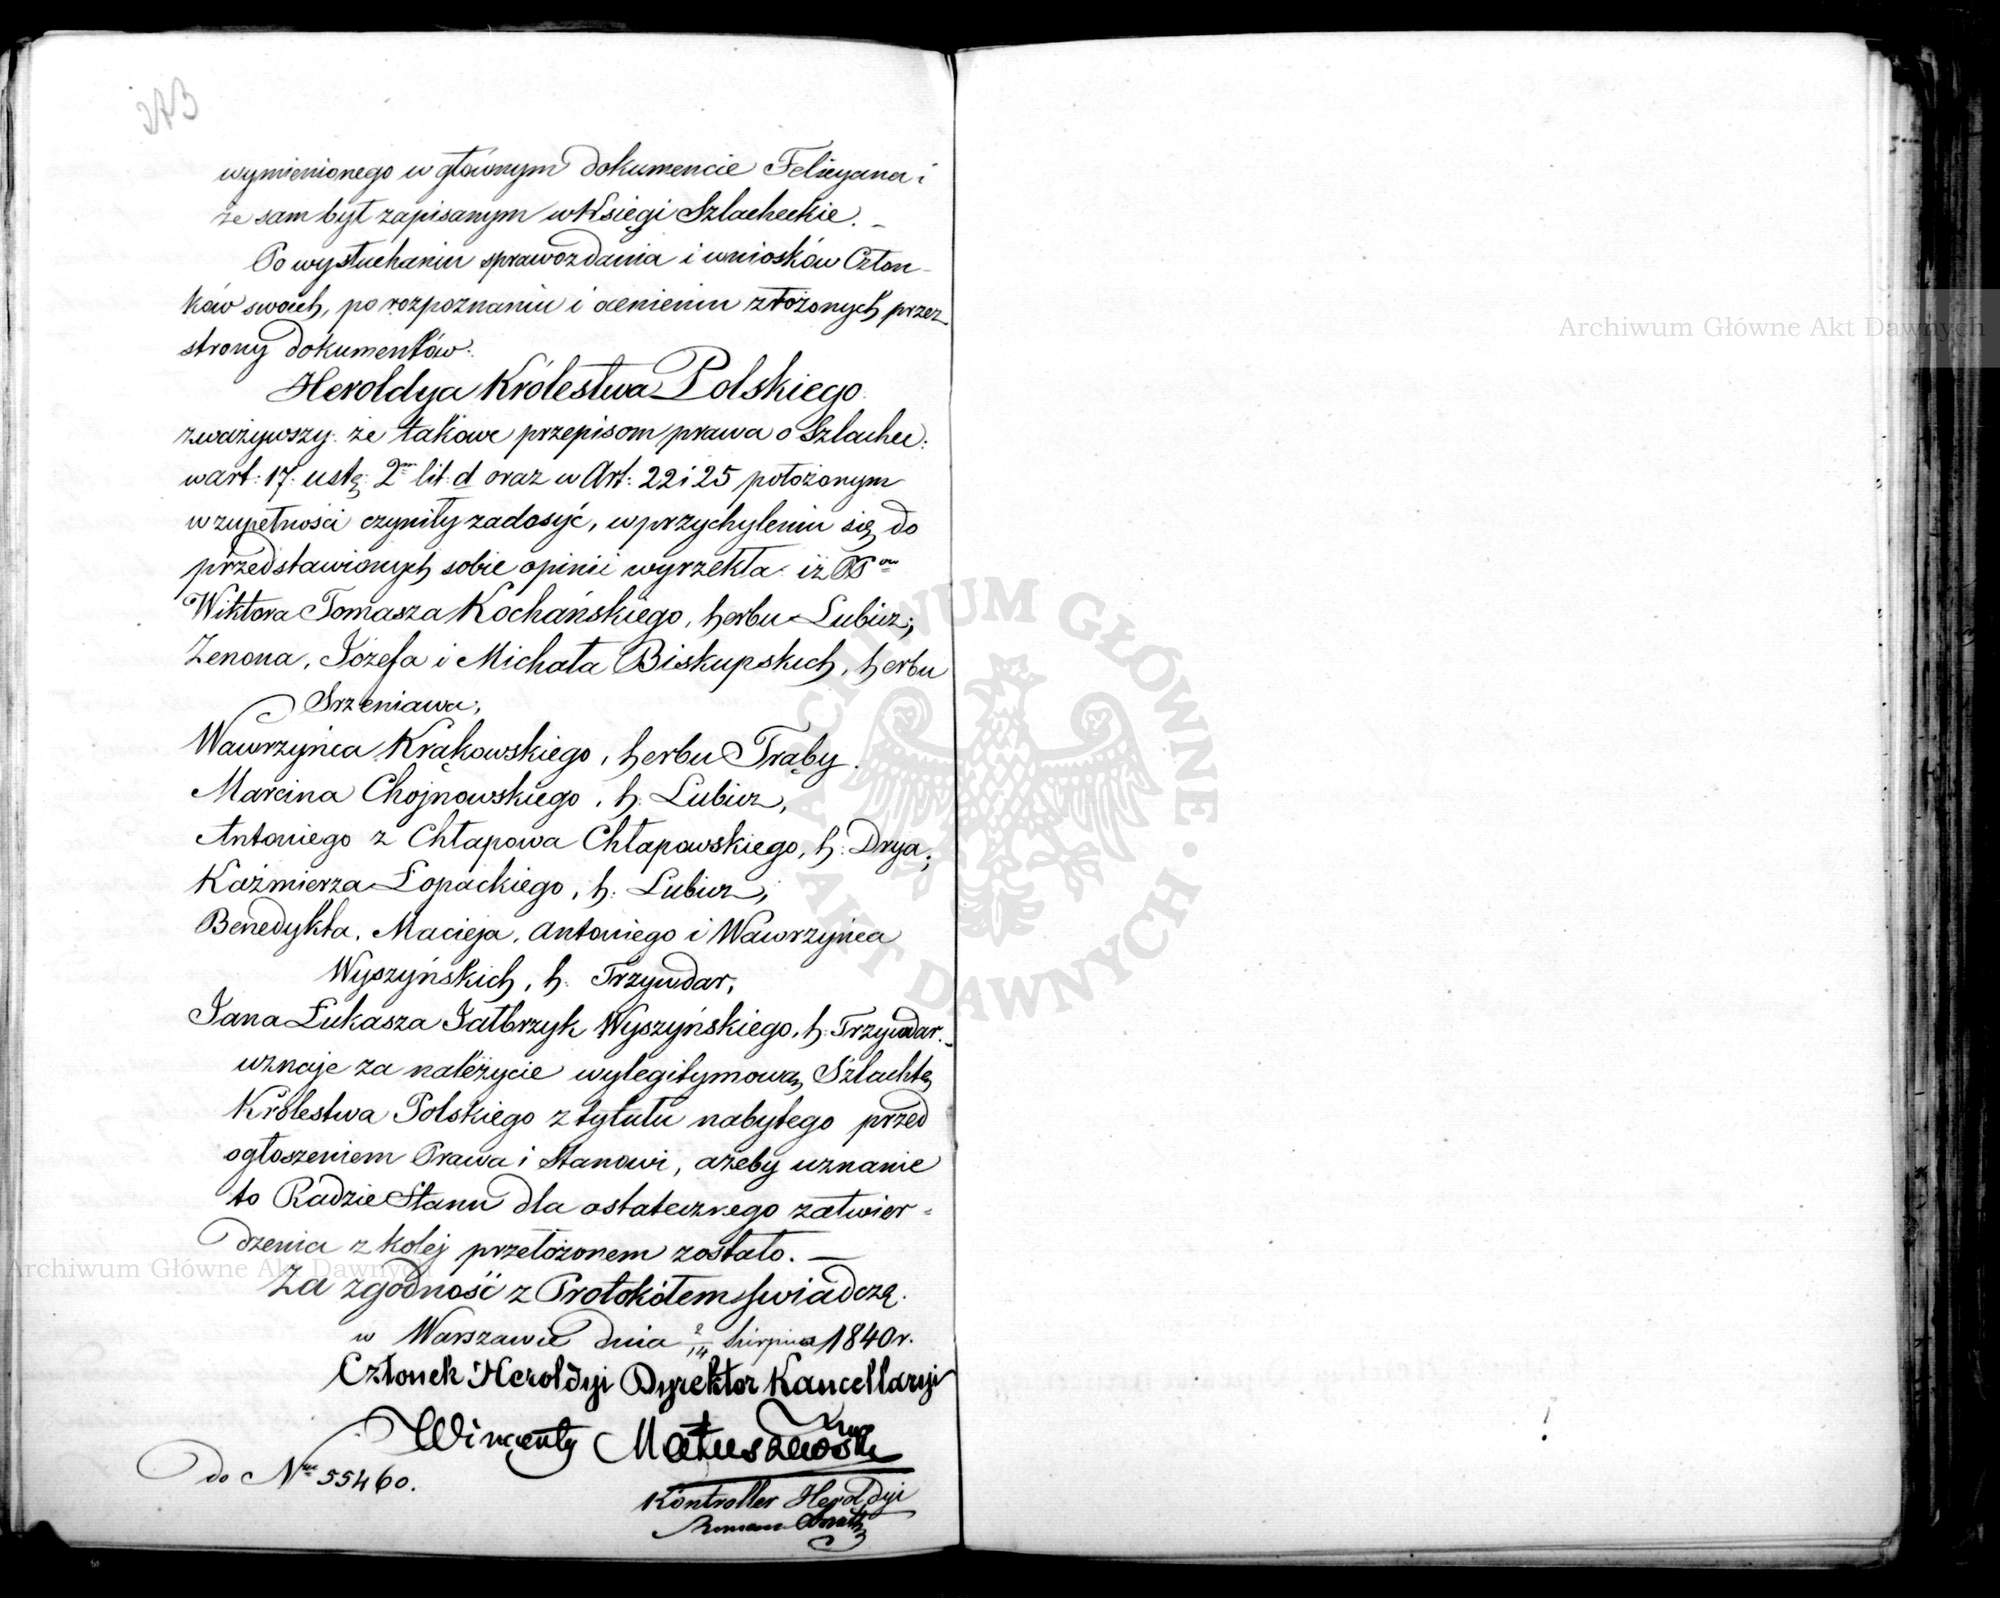 273
wymienionego w głównym dokumencie Felicyana i
że sam był zapisanym w Księgi Szlacheckie. –
Po wysłuchaniu sprawozdania i wniosków Człon-
ków swoich, po rozpoznaniu i ocenieniu złożonych przez
strony dokumentów.
Heroldya Królestwa Polskiego
zważywszy że takowe przepisom prawa o Szlachec:
w art: 17. ustę: 2m lit: d oraz w Art: 22 i 25 położonym
w zupełności czyniły zadosyć, w przychyleniu się do
przedstawionych sobie opinii wyrzekła iż PPów
Wiktora Tomasza Kochańskiego, herbu Lubicz;
Zenona, Józefa i Michała Biskupskich, herbu
Srzeniawa;
Wawrzyńca Krakowskiego, herbu Trąby.
Marcina Chojnowskiego, h: Lubicz,
Antoniego z Chłapowa Chłapowskiego, h: Drya;
Kaźmierza Łopackiego, h: Lubicz;
Benedykta, Macieja, Antoniego i Wawrzyńca
Wyszyńskich, h. Trzywdar,
Jana Łukasza Jałbrzyk Wyszyńskiego, h: Trzywdar. –
uznaje za należycie wylegitymowaną Szlachtę
Królestwa Polskiego z tytułu nabytego przed
ogłoszeniem Prawa i Stanowi, ażeby uznanie
to Radzie Stanu dla ostatecznego zatwier-
dzenia z kolej przełożonem zostało. —
Za zgodność z Protokółem świadczą.
w Warszawie dnia 2/14 Sierpnia 1840 r.
Członek Heroldyi Dyrektor Kancellaryi
Wincenty Matuszewski
do Nru 55460.
Kontroller Heroldyi
Roman
Archiwum Główne Akt Dawnych
Archiwum Główne Akt Dawnych
ARCHIWUM GŁÓWNE · AKT DAWNYCH ·